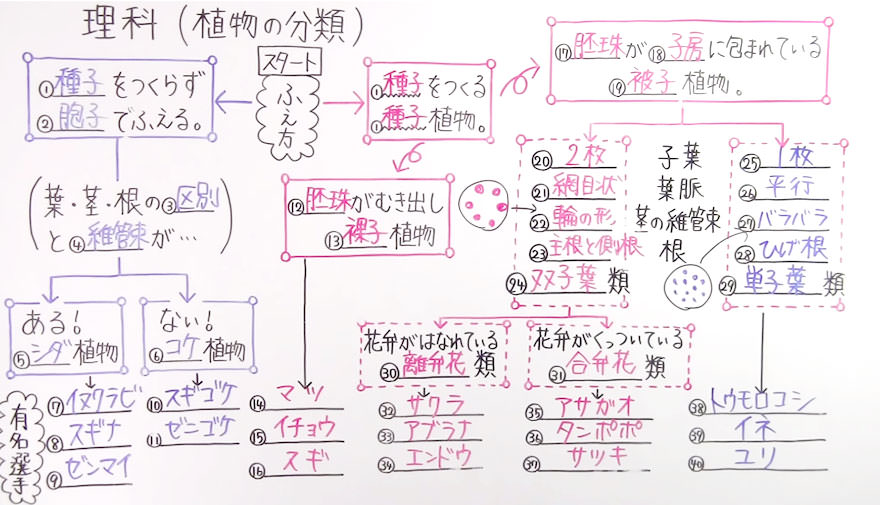 理科(植物の分類)
スタート
ふえ方
①種子をつくらず
②胞子でふえる。
(葉・茎・根の③区別
と④維管束が…)
ある!
⑤シダ植物
ない!
⑥コケ植物
有名選手
⑦イヌワラビ
⑧スギナ
⑨ゼンマイ
⑩スギゴケ
⑪ゼニゴケ
①種子をつくる
①種子植物。
⑫胚珠がむき出し
⑬裸子植物
⑭マツ
⑮イチョウ
⑯スギ
⑰胚珠が⑱子房に包まれている
⑲被子植物。
⑳2枚 子葉 ㉕1枚
㉑網目状 葉脈 ㉖平行
㉒輪の形 茎の維管束 ㉗バラバラ
㉓主根と側根 根 ㉘ひげ根
㉔双子葉類 ㉙単子葉類
花弁がはなれている
㉚離弁花類
花弁がくっついている
㉛合弁花類
㉜サクラ
㉝アブラナ
㉞エンドウ
㉟アサガオ
㊱タンポポ
㊲サツキ
㊳トウモロコシ
㊴イネ
㊵ユリ